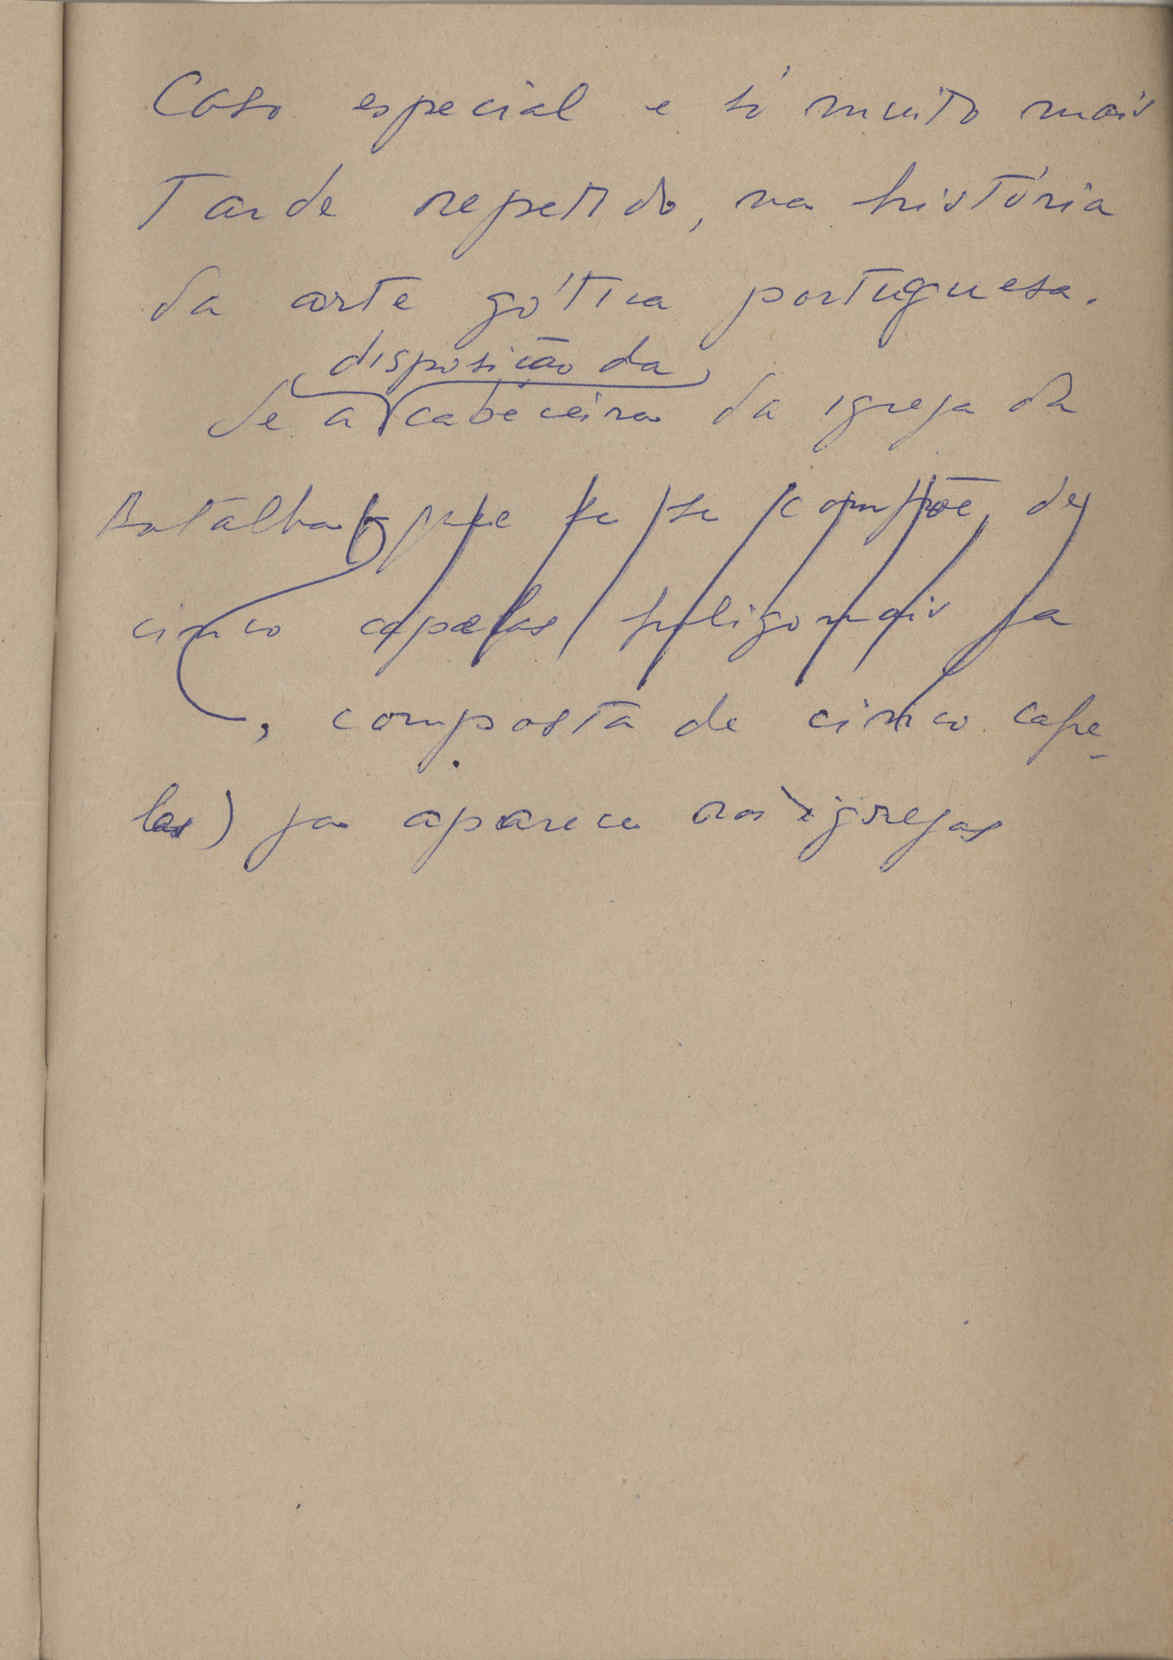 Caso especial e só muito mais
tarde repetido, na história
da arte gótica portuguesa.
disposição da
de a cabeceira da igreja da
Batalha que se se compõe de
cinco capelas poligonais ja
, composta de cinco cape-
las) ja aparece nas igrejas